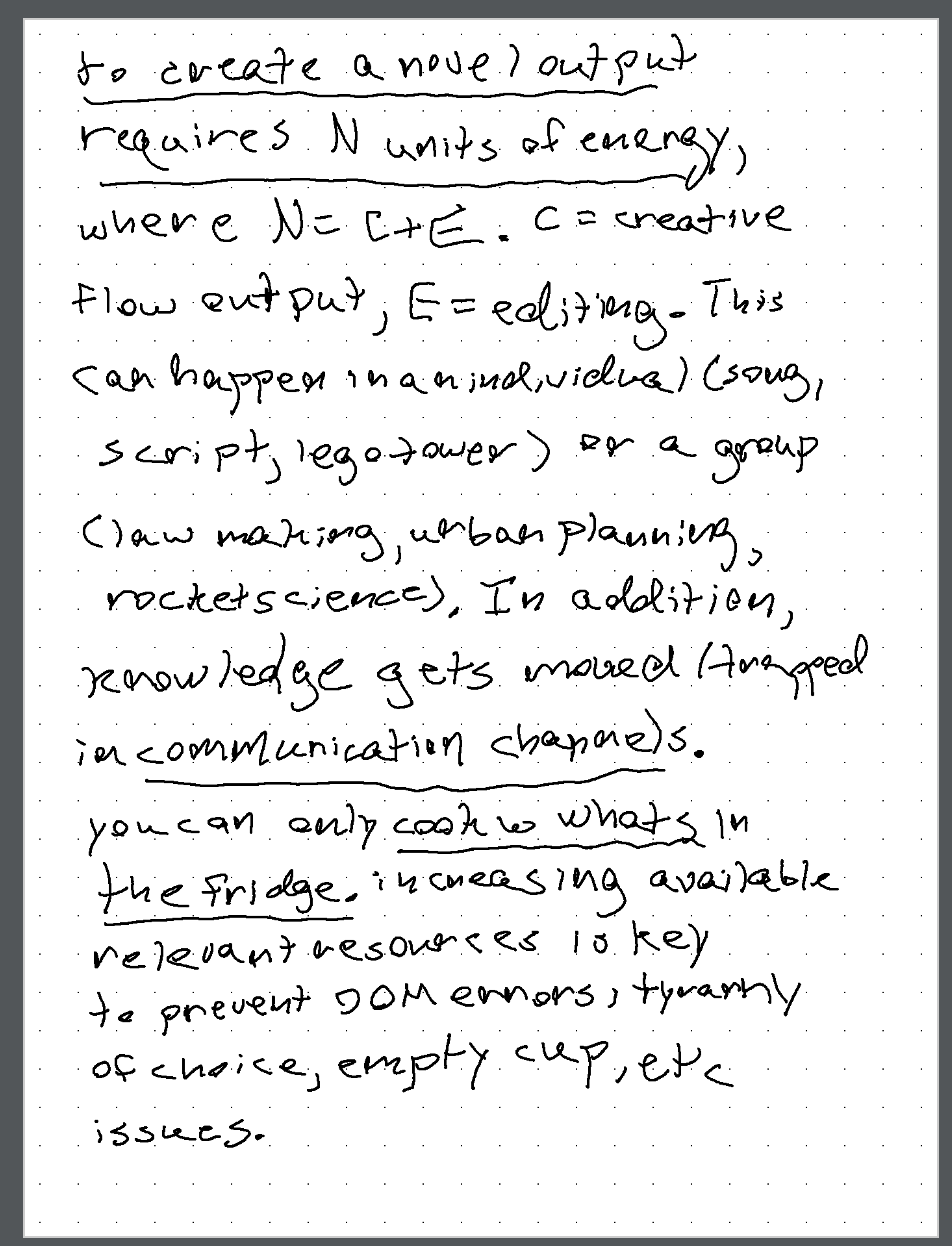 to create a novel output
requires N units of energy,
where N = C+E. C = creative
flow output, E = editing. This
can happen in an individual (song,
script, lego tower) or a group
(law making, urban planning,
rocket science). In addition,
knowledge gets moved/trapped
in communication channels.
you can only cook w whats in
the fridge. increasing available
relevant resources is key
to prevent OOM errors, tyranny
of choice, empty cup, etc
issues.